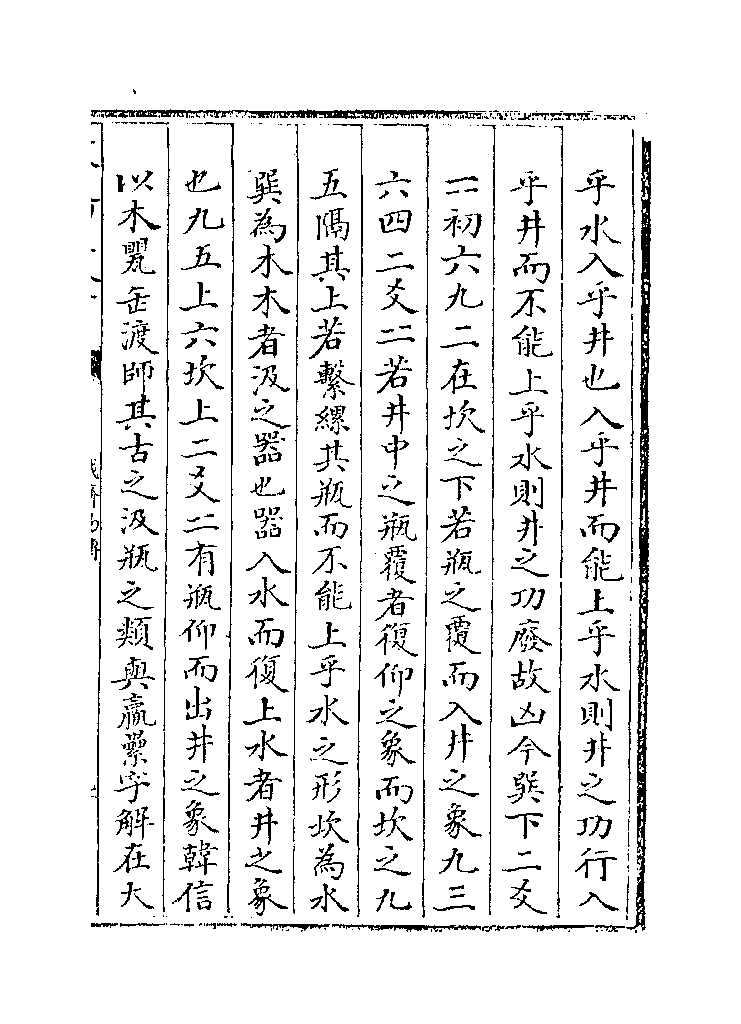 乎水入乎井也入乎井而能上乎水則井之功行入
乎井而不能上乎水則井之功廢故凶今巽下二爻
⚍初六九二在坎之下若瓶之覆而入井之象九三
六四二爻⚍若井中之瓶覆者復仰之象而坎之九
五隔其上若繫縲其瓶而不能上乎水之形坎為水
巽為木木者汲之器也器入水而復上水者井之象
也九五上六坎上二爻⚍有瓶仰而出井之象韓信
以木罌缶渡師其古之汲瓶之類與羸纍字解在大